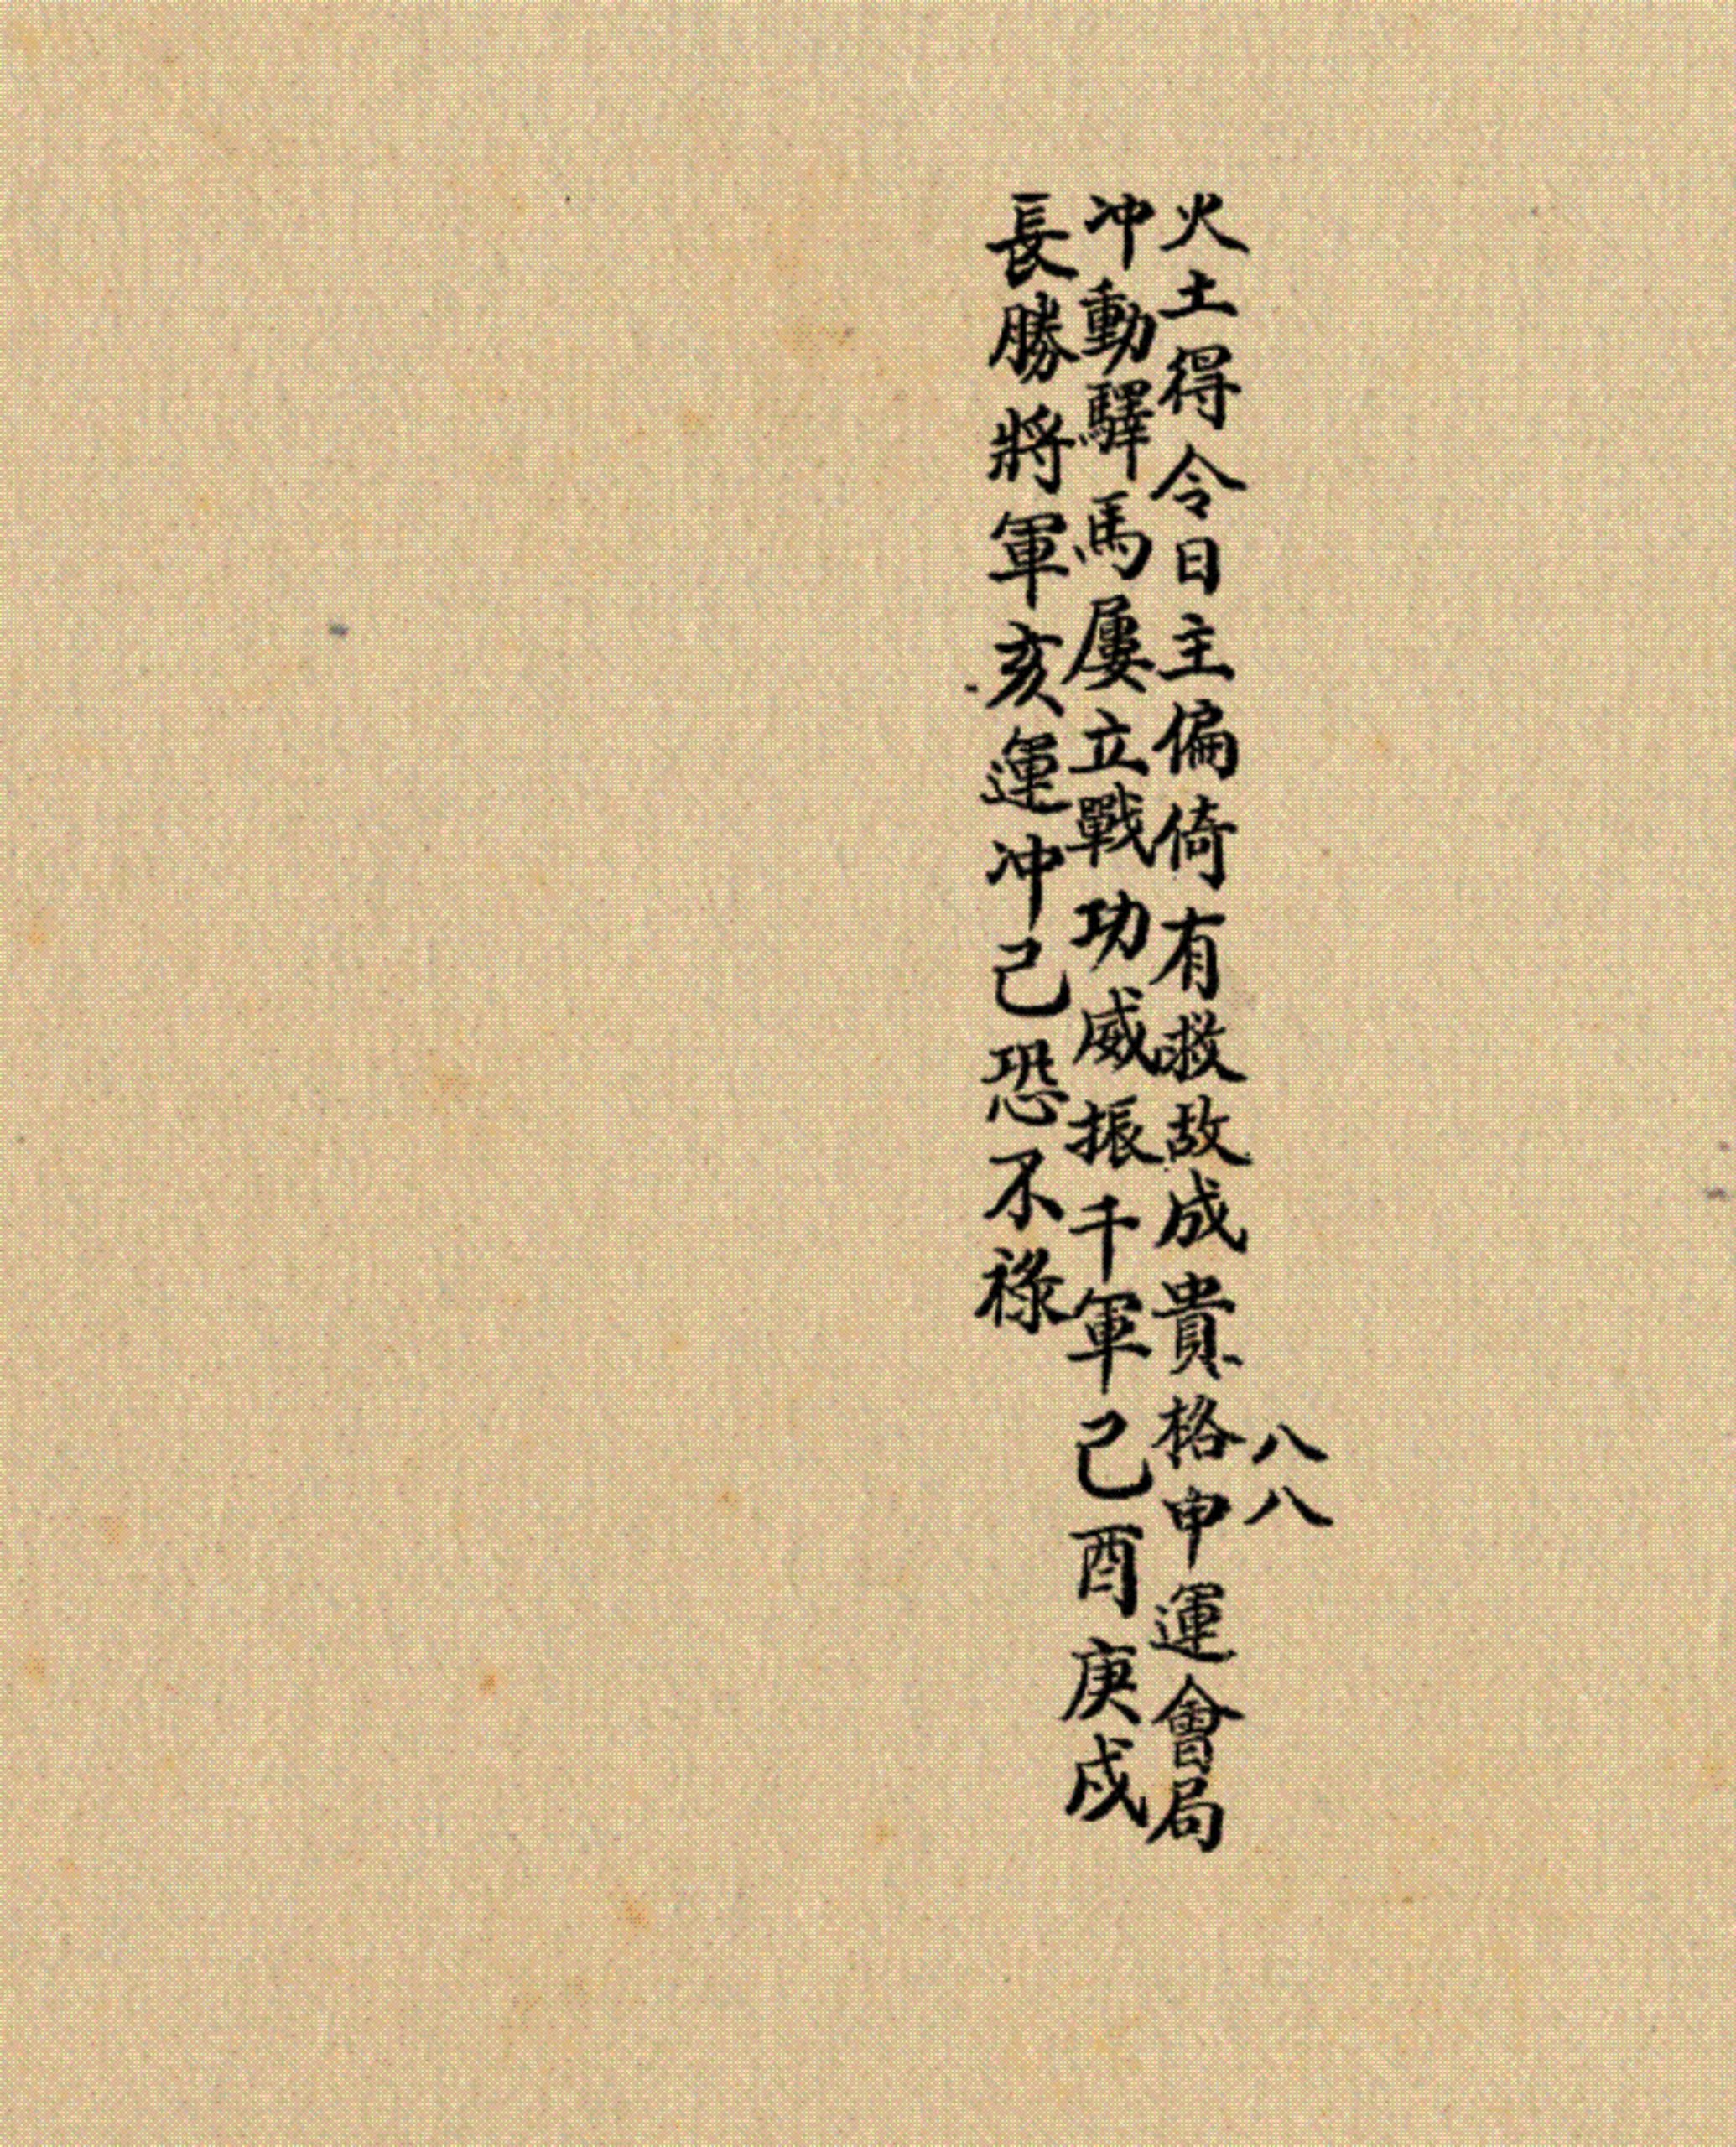 八八
火土得令日主偏倚有救故成貴格申運會局
冲動驛馬屢立戰功威振千軍己酉庚戌
長勝將軍亥運冲己恐不祿